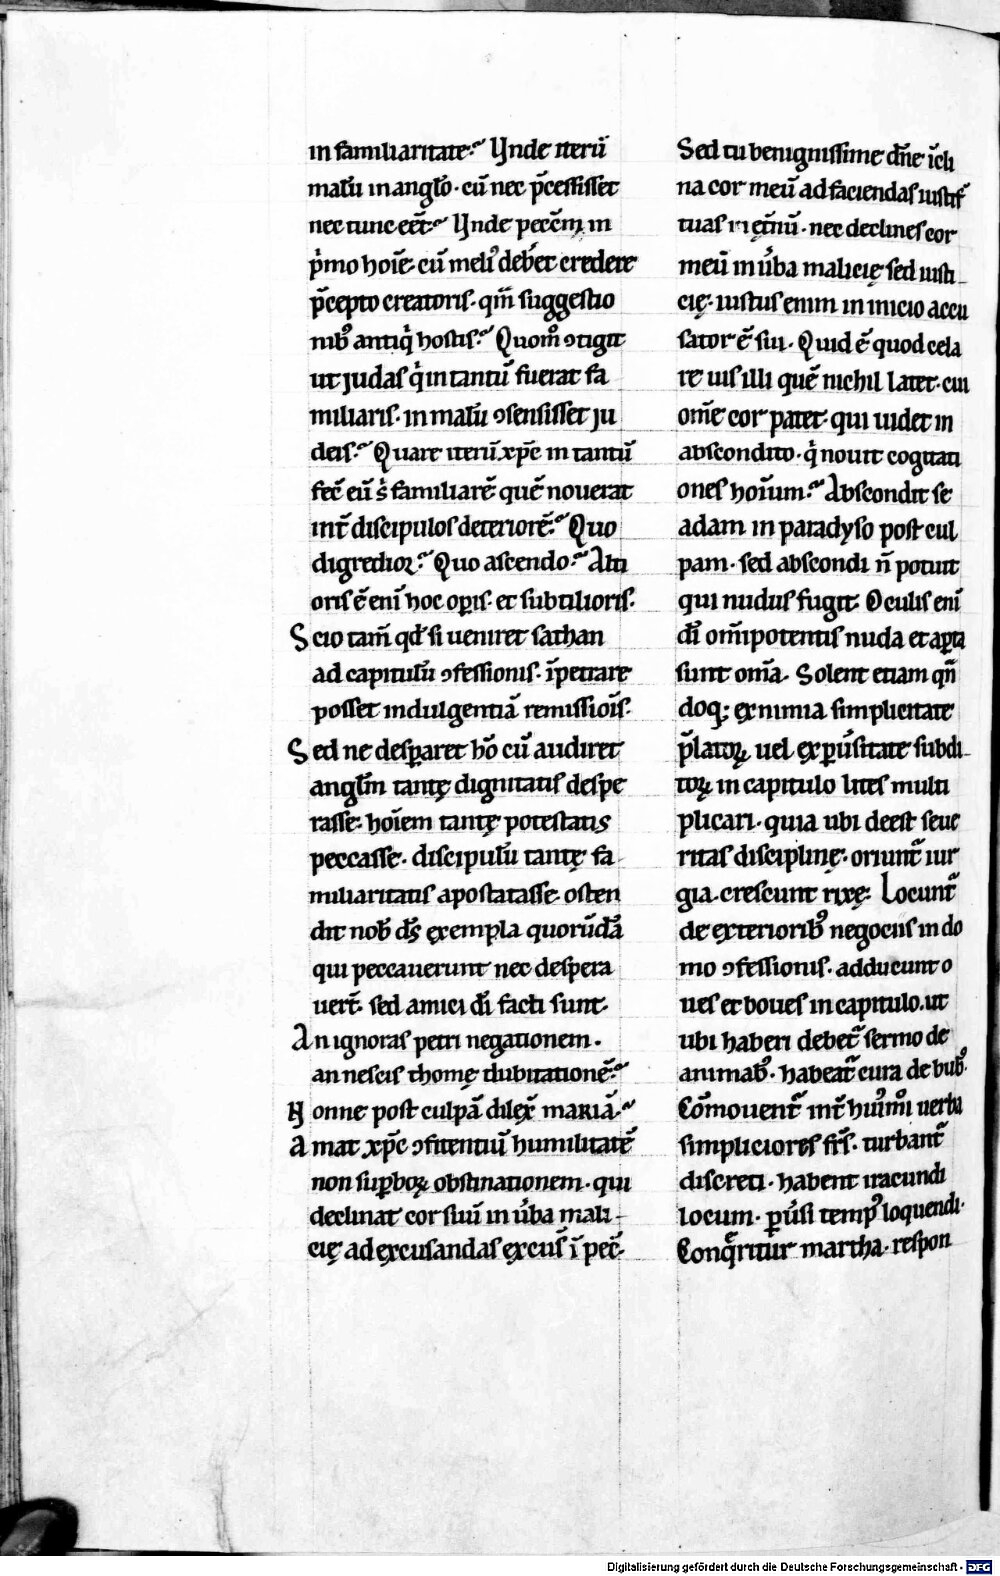 in familiaritate. Unde iterū
malū in angl̄o. cū nec p̄cessisset
nec tunc eēt. Unde pecc̄m in
p͛mo hoīe. cū meli᷒ deb͛et credere
p̄cepto creatoris. qm̄ suggestio
nib᷒ antiq͛ hostis. Quom̊ ↄtigit
ut judas q͛ in tantū fuerat fa
miliaris. in malū ↄsensisset ju
deis. Quare iterū xp̄c in tantū
fec̄ eū s͛ familiarē quē nouerat
int̄ discipulos deteriorē. Quo
digredior. Quo ascendo. Alti
oris ē enī hoc op̲is. et subtilioris.
Scio tam̄ qd̄ si ueniret sathan
ad capitulū ↄfessionis. īpetrare
posset indulgentiā remissioīs.
Sed ne desp̲aret hō cū audiret
angl̄m tantę dignitatis despe
rasse. hoīem tantę potestatis
peccasse. discipulū tantę fa
miliaritatis apostatasse. osten
dit nob̄ ds̄ ęxempla quorūdā
qui peccauerunt nec despera
uert̄. sed amici dī facti sunt.
An ignoras petri negationem.
an nescis thomę dubitationē.
Nonne post culpā dilex̄ mariā.
Amat xp̄c ↄfitentiū humilitatē
non sup̲boꝝ obstinationem. qui
declinat cor suū in u͛ba mali-
cię ad ęxcusandas ęxcus̄ ī pec̄.
Sed tu benignissime dn̄e īcli
na cor meū ad faciendas iustif̄
tuas in ęt̄nū. nec declines cor
meū in u͛ba malicię sed iusti-
cię. iustus enim in inicio accu
sator ē sui. Quid ē quod cela
re uis illi quē nichil latet. cui
om̄e cor patet. qui uidet in
abscondito. q͛ nouit cogitati
ones hoīum. Abscondit se
adam in paradyso post cul
pam. sed abscondi n̄ potuit
qui nudus fugit. Oculis enī
dī om̄ipotentis nuda et ap̲ta
sunt om̄a. Solent etiam qn̄
doq; ęx nimia simplicitate
p̄latoꝝ uel ęx p̲u͛sitate subdi-
toꝝ in capitulo lites multi
plicari. quia ubi deest seue
ritas disciplinę. oriunt᷑ iur
gia. crescunt rixę. Locunt᷑
de ęxteriorib᷒ negociis in do
mo ↄfessionis. adducunt o
ues et boues in capitulo. ut
ubi haberi debet᷑ sermo de
animab᷒. habeat᷑ cura de bub᷒.
Com̄ouent᷑ int̄ hui᷒mōi uerba
simpliciores fr̄s. turbant᷑
discreti. habent iracundi
locum. p̲u͛si temp᷒ loquendi.
Conq̄ritur martha. respon
Digitalisierung gefördert durch die Deutsche Forschungsgemeinschaft - DFG